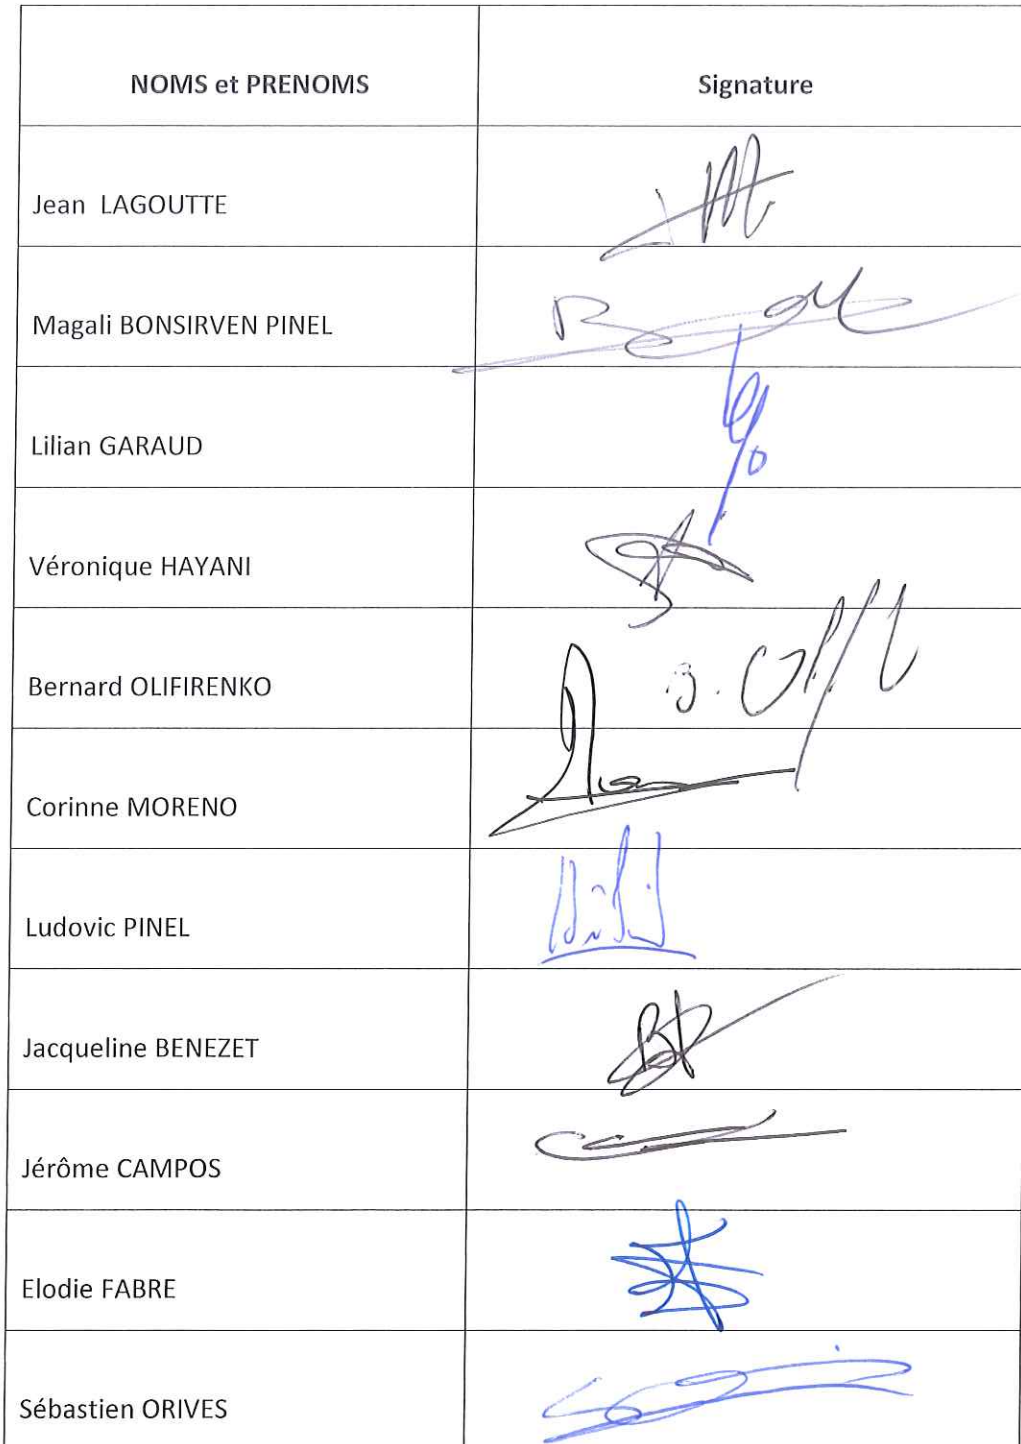 NOMS et PRENOMS
Signature
Jean LAGOUTTE
Magali BONSIRVEN PINEL
Lilian GARAUD
Véronique HAYANI
Bernard OLIFIRENKO
Corinne MORENO
Ludovic PINEL
Jacqueline BENEZET
Jérôme CAMPOS
Elodie FABRE
Sébastien ORIVES